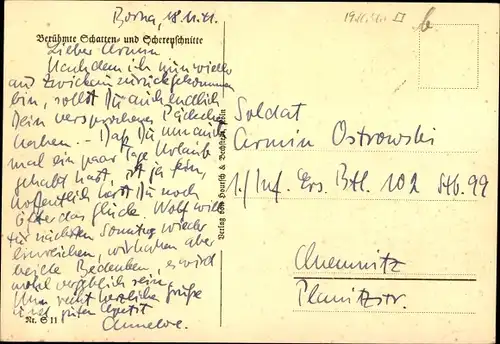 Borna, 18.11.41.
Berühmte Schatten- und Scherenschnitte
Lieber Armin
Nachdem ich nun wieder
aus Zwickau zurückgekommen
bin, sollst Du auch endlich
Dein versprochenes Päckchen
haben. – Daß Du nun auch
mal ein paar Tage Urlaub
gehabt hast, ist ja fein,
hoffentlich hast Du noch
öfter das Glück. Wolf will
für nächsten Sonntag wieder
einreichen, wir haben aber
beide Bedenken, es wird
wohl vergeblich sein.
Nun recht herzliche Grüße
und guten Appetit
Annelore.
Nr. S 11
Verlag von Hoursch & Bechstedt, Köln
Soldat
Armin Ostrowski
1./Inf. Ers. Btl. 102 Stb. 99
Chemnitz
Planitzstr.